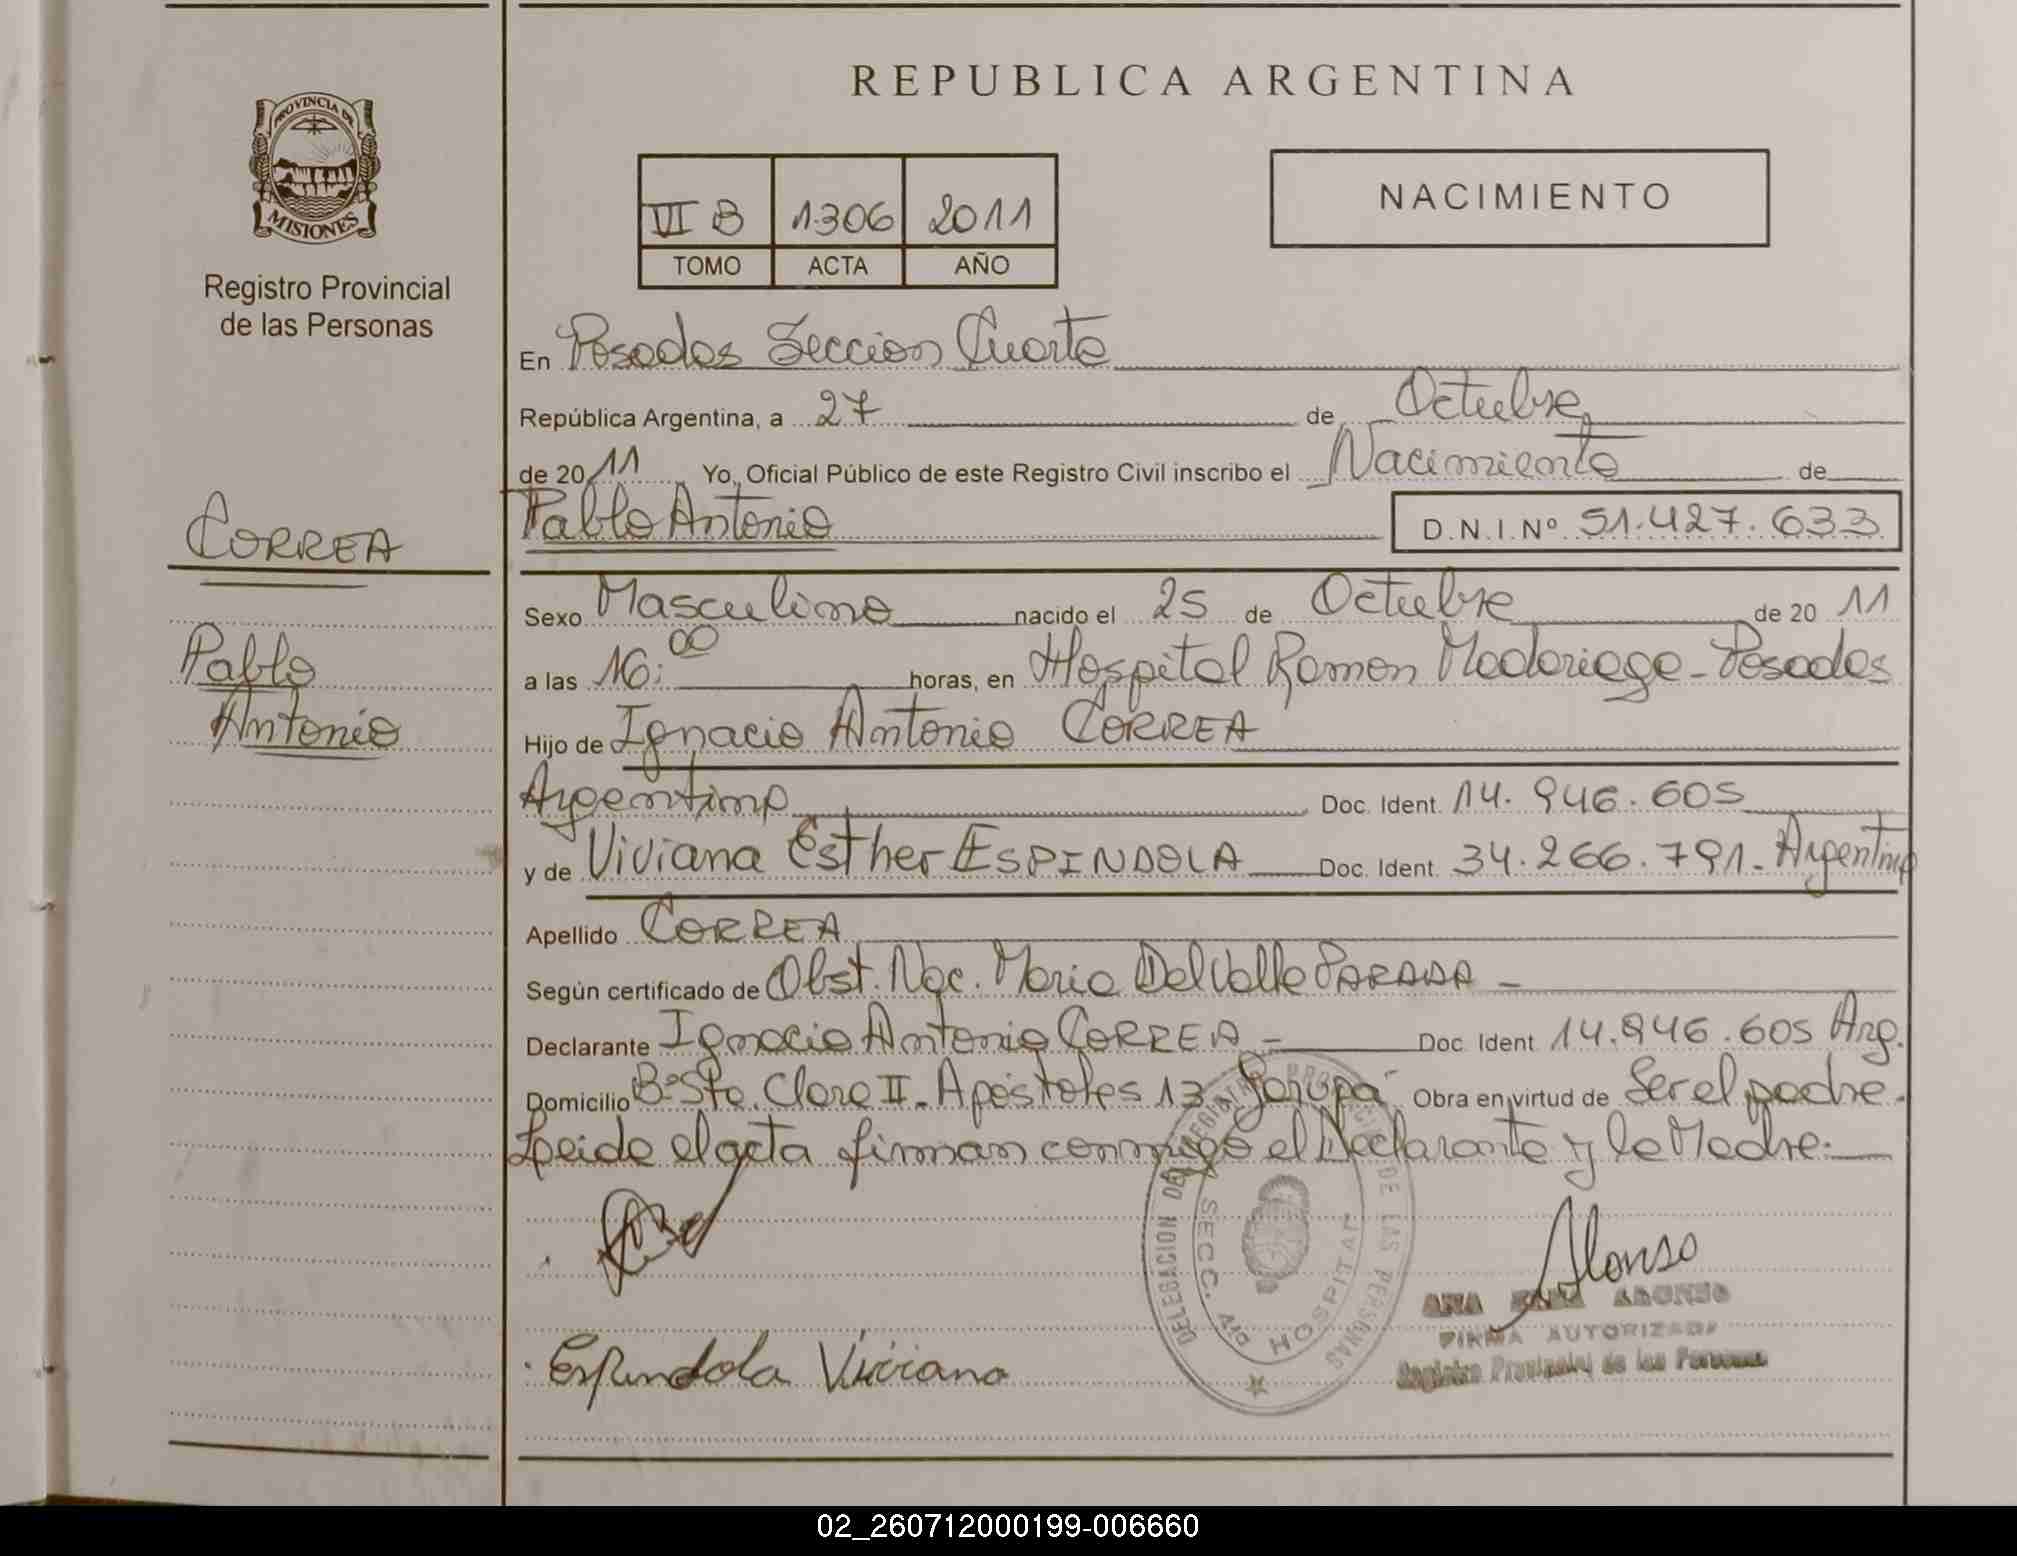 REPUBLICA ARGENTINA
PROVINCIA DE
MISIONES
Registro Provincial
de las Personas
VI B 1306 2011
TOMO ACTA AÑO
NACIMIENTO
En Posadas Seccion Cuarta
República Argentina, a 27 de Octubre
de 2011 Yo, Oficial Público de este Registro Civil inscribo el Nacimiento de
CORREA
Pablo Antonio
D.N.I.Nº 51.427.633
Sexo Masculino nacido el 25 de Octubre de 2011
Pablo
Antonio
a las 16:00 horas, en Hospital Ramon Madariaga - Posadas
Hijo de Ignacio Antonio CORREA
Argentino Doc. Ident. 14.946.605
y de Viviana Esther ESPINDOLA Doc. Ident. 34.266.791 - Argentina
Apellido CORREA
Según certificado de Obst. Nac. Maria Del Valle PARADA -
Declarante Ignacio Antonio CORREA - Doc. Ident. 14.946.605 Arg.
Domicilio Bº Sta. Clara II - Apóstoles 13 Garupá Obra en virtud de Ser el padre.
Leida el acta firman conmigo el Declarante y la Madre.
DELEGACION DEL REGISTRO PROVINCIAL DE LAS PERSONAS
SECC. 4ta HOSPITAL
Alonso
ANA ALONSO
FIRMA AUTORIZADA
Registro Provincial de las Personas
Espindola Viviana
02_260712000199-006660